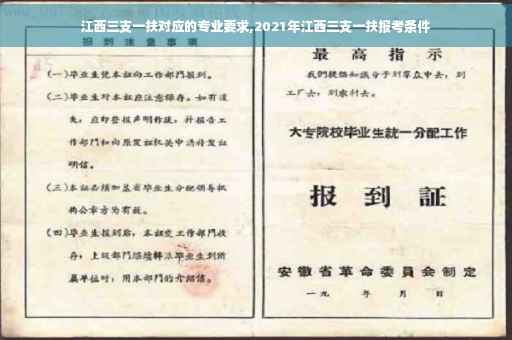 江西三支一扶对应的专业要求,2021年江西三支一扶报考条件
报到注意事项
(一)毕业生凭本证向工作部门报到。
(二)毕业生对本证应注意保存。如有遗
失,应即登报声明作废,并报告工
作部门和向原发证机关申请补发证
明信。
(三)本证必须加盖省毕业生分配领导机
构公章方为有效。
(四)毕业生报到后,本证交工作部门收
存;上级部门继续转派毕业生到所
属单位时,用本部门的介绍信。
最高指示
我们提倡知识分子到群众中去,到
工厂去,到农村去。
大专院校毕业生统一分配工作
报到证
安徽省革命委员会制定
一九 年 月 日